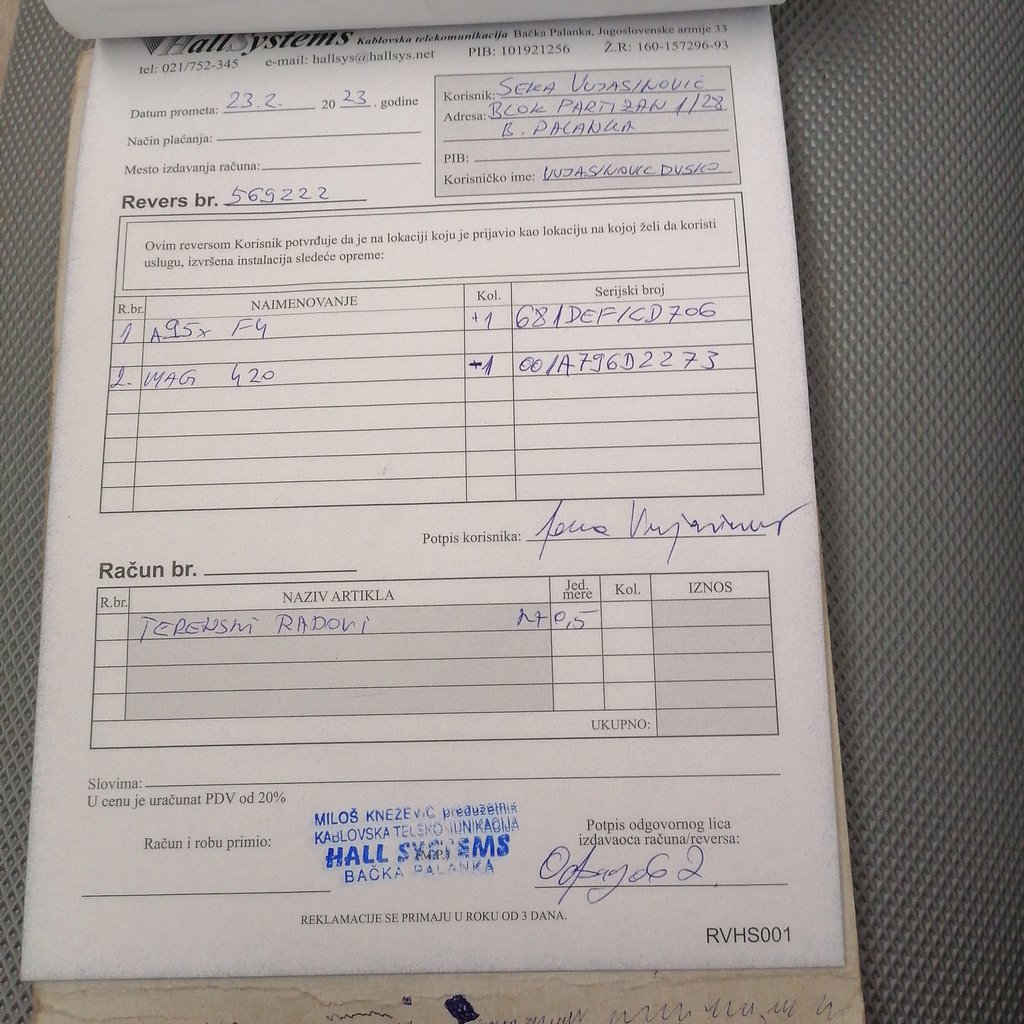 HallSystems Kablovska telekomunikacija Bačka Palanka, Jugoslovenske armije 33
tel: 021/752-345 e-mail: hallsys@hallsys.net PIB: 101921256 Ž.R: 160-157296-93
Datum prometa: 23.2. 2023. godine
Način plaćanja:
Mesto izdavanja računa:
Korisnik: SEKA VUJASINOVIĆ
Adresa: BLOK PARTIZAN 1/28
B. PALANKA
PIB:
Korisničko ime: VUJASINOVIC DUSKO
Revers br. 569222
Ovim reversom Korisnik potvrđuje da je na lokaciji koju je prijavio kao lokaciju na kojoj želi da koristi
uslugu, izvršena instalacija sledeće opreme:
R.br. NAIMENOVANJE Kol. Serijski broj
1 A95x F4 +1 681DEF1CD706
2. MAG 420 -1 001A796D2273
Potpis korisnika:
Račun br.
R.br. NAZIV ARTIKLA Jed. mere Kol. IZNOS
TERENSKI RADOVI 0,5
UKUPNO:
Slovima:
U cenu je uračunat PDV od 20%
Račun i robu primio:
MILOŠ KNEŽEVIĆ preduzetnik
KABLOVSKA TELEKOMUNIKACIJA
HALL SYSTEMS
BAČKA PALANKA
Potpis odgovornog lica
izdavaoca računa/reversa:
REKLAMACIJE SE PRIMAJU U ROKU OD 3 DANA.
RVHS001